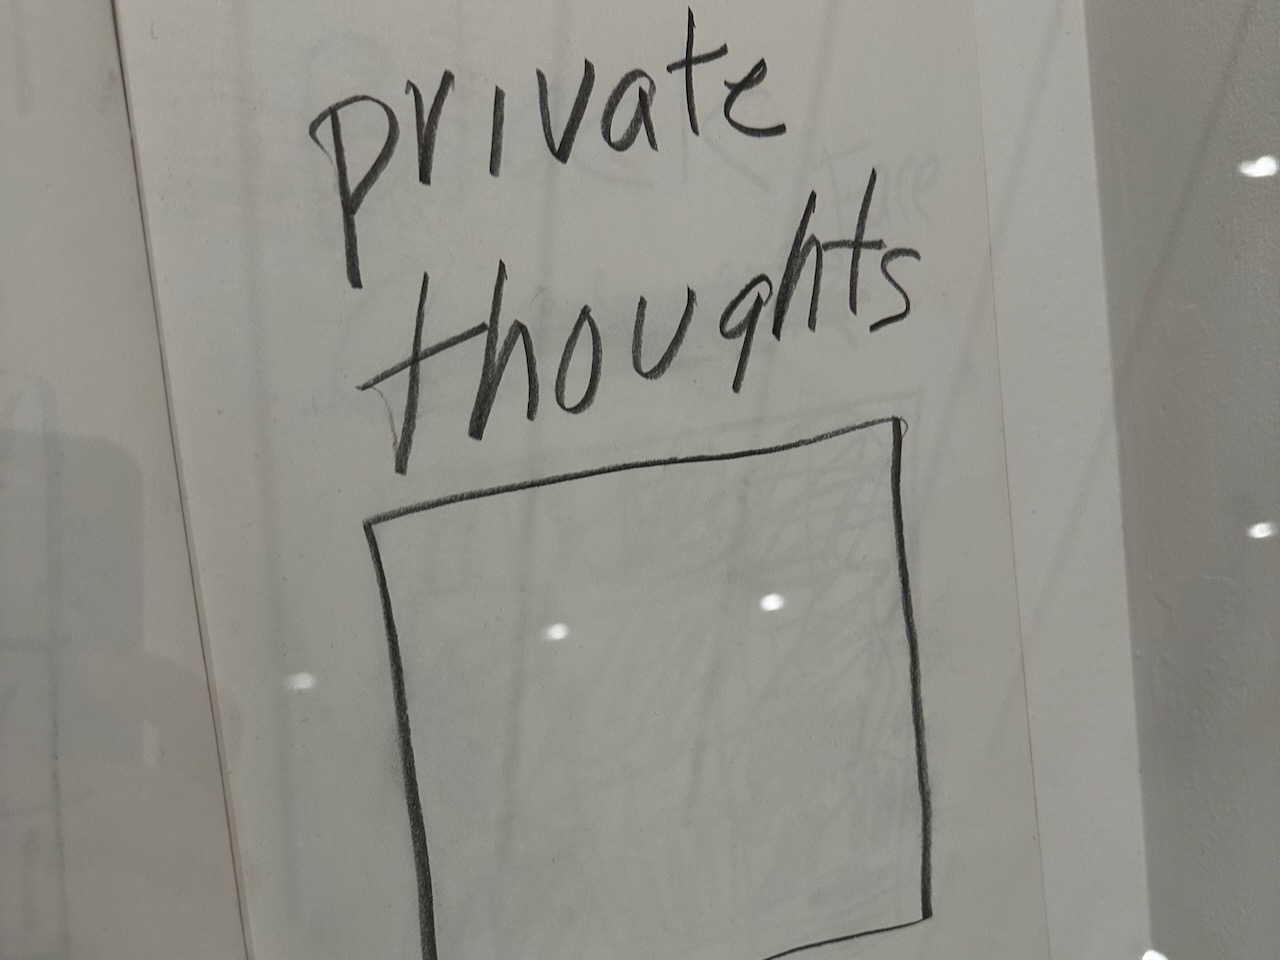 private
thoughts